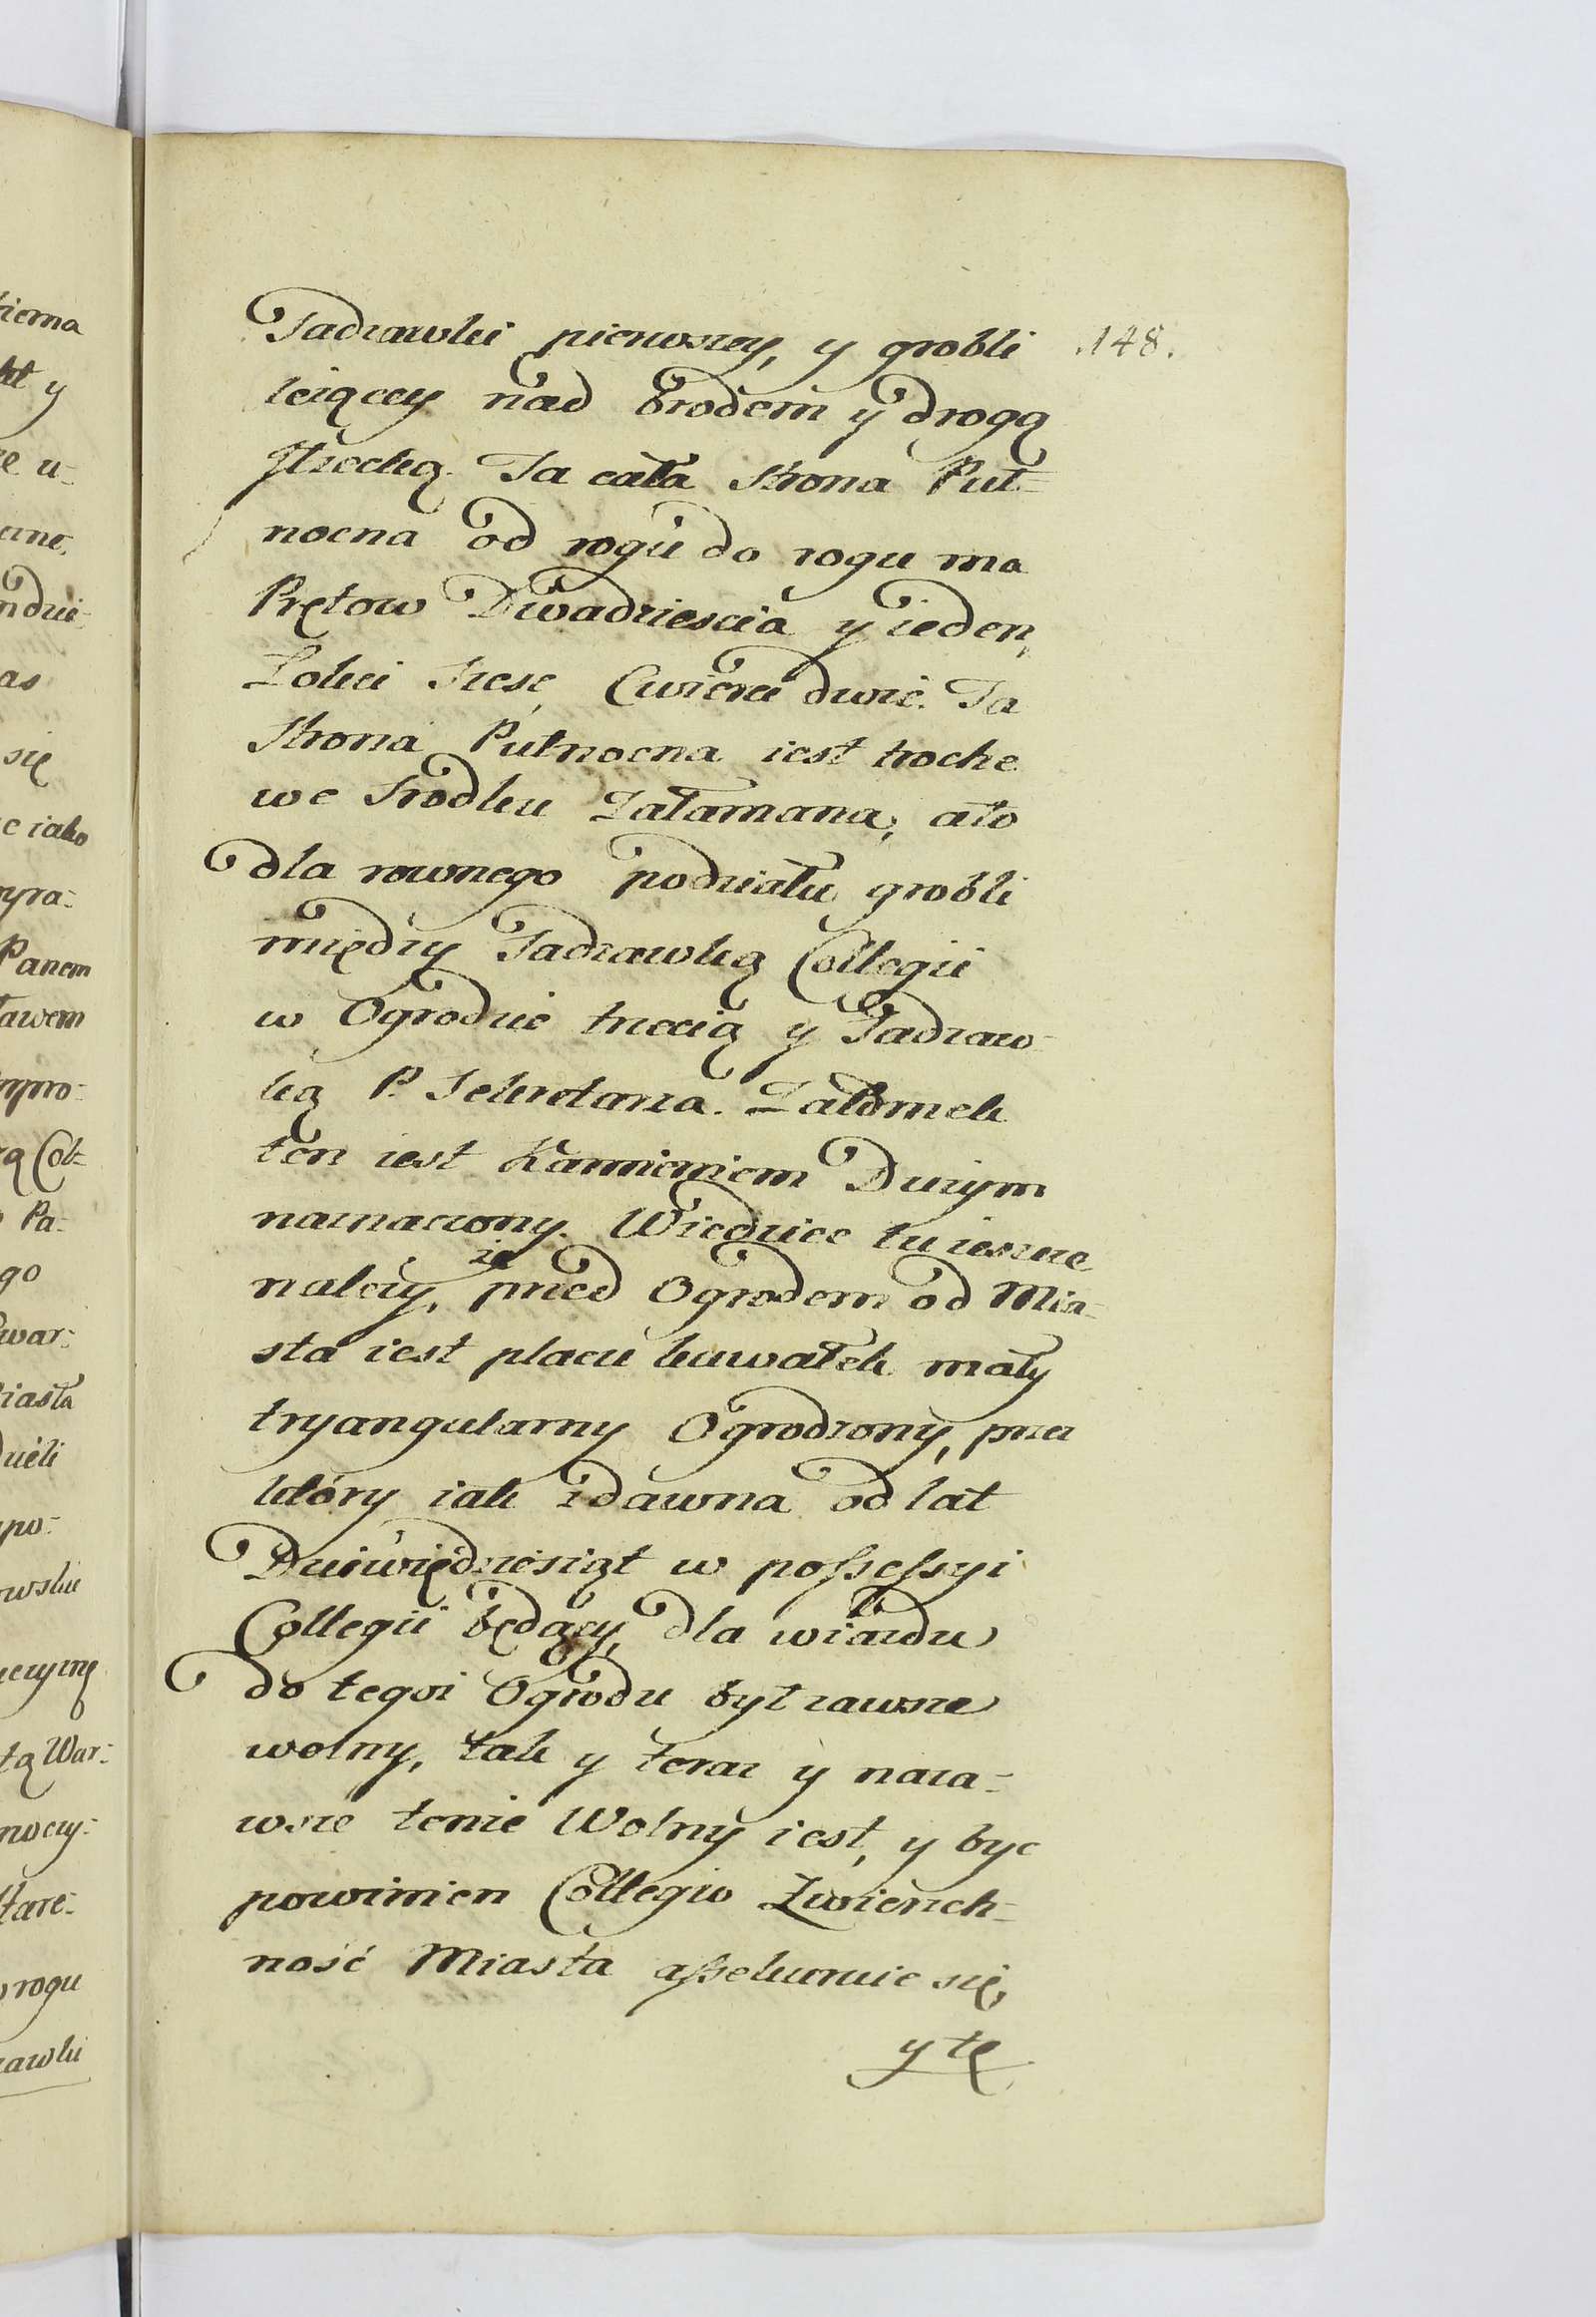 Sadzawki pierwszey, y grobli .148.
leżącey nad Brodem y drogą
strecką. Ta cała strona Puł-
nocna od rogu do rogu ma
Prętow Dwadziescia y ieden,
Łokci szesc, Cwierci dwie. Ta
Strona Pułnocna iest troche
we srodku Załamana, ato
dla rownego podziału grobli
między Sadzawką Collegii
w Ogrodzie trzecią y Sadzaw-
ką P. Sekretarza. Załomek
ten iest Kamieniem Duzym
naznaczony. Wiedziec tu ieszcze
należy, że przed Ogrodem od Mia-
sta iest placu kawałek mały
tryangularny Ogrodzony, przez
który iak zdawna od lat
Dziewiędziesiąt w possessyi
Collegii będący, dla wiazdu
do tegoż Ogrodu był zawsze
wolny, tak y teraz y naza-
wsze tenże Wolny iest, y byc
powinien Collegio Zwierzch-
ność Miasta assekuruie się,
y tę
ierna
kt y
ze u-
czne.
ndzie-
as
się
c iako
Panem
ławem
Pa-
go
iasta
po-
owsku
tą War-
rogu
zawki